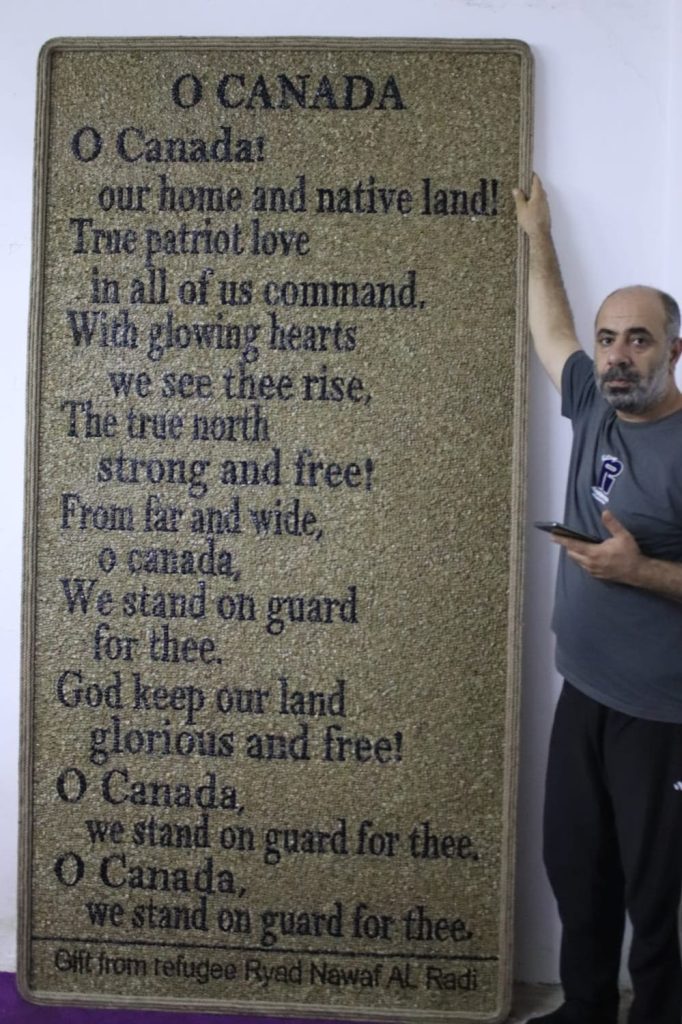 O CANADA
O Canada!
our home and native land!
True patriot love
in all of us command.
With glowing hearts
we see thee rise,
The true north
strong and free!
From far and wide,
o canada,
We stand on guard
for thee.
God keep our land
glorious and free!
O Canada,
we stand on guard for thee.
O Canada,
we stand on guard for thee.
Gift from refugee Ryad Nawaf AL Radi